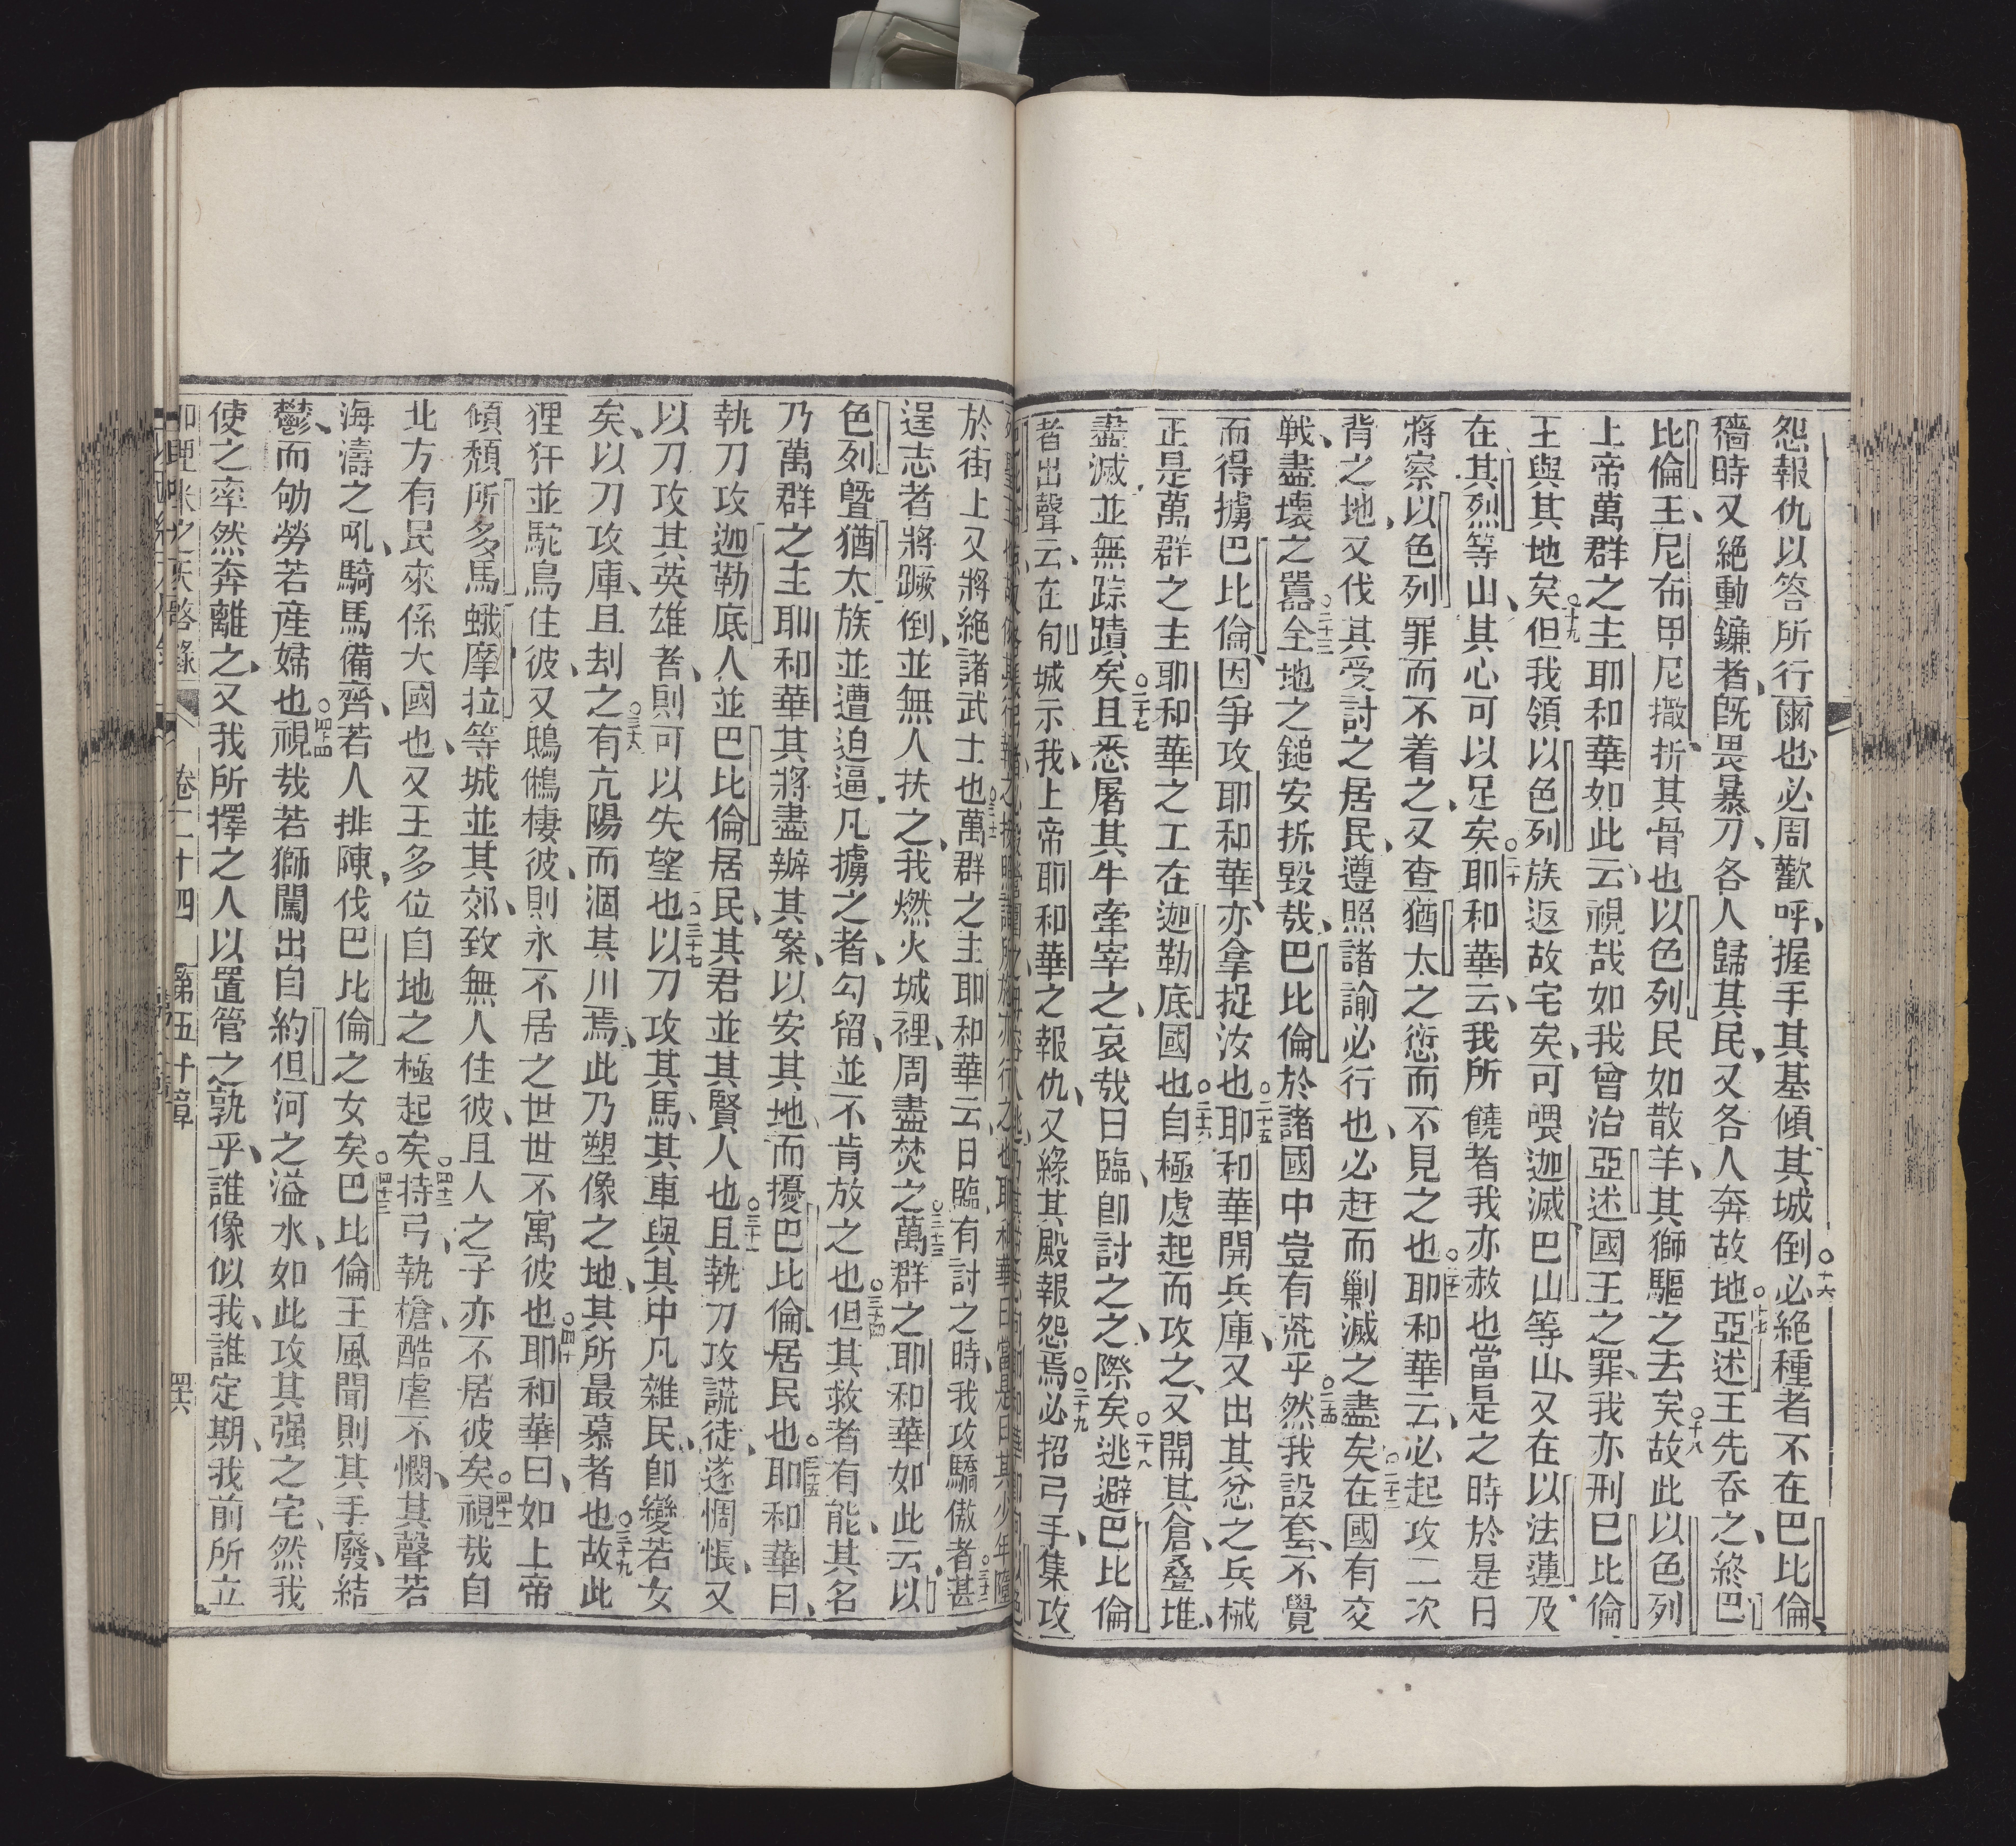 怨報仇以答所行爾也必周歡呼握手其基傾其城倒○十六必絕種者不在巴比倫
穡時又絕動鐮者旣畏暴刀各人歸其民又各人奔故地○十七亞述王先呑之終巴
比倫王尼布甲尼撒折其骨也以色列民如散羊其獅驅之去矣○十八故此以色列
上帝萬群之主耶和華如此云視哉如我曾治亞述國王之罪我亦刑巴比倫
王與其地矣○十九但我領以色列族返故宅矣可喂迦滅巴山等山又在以法蓮及
在其烈等山其心可以足矣○二十耶和華云我所饒者我亦赦也當是之時於是日
將察以色列罪而不着之又查猶太之愆而不見之也○二十一耶和華云必起攻二次
背之地又伐其受討之居民遵照諸諭必行也必赶而剿滅之盡矣○二十二在國有交
戰盡壞之嚣○二十三全地之鎚安拆毀哉巴比倫於諸國中豈有荒乎○二十四然我設套不覺
而得擄巴比倫因爭攻耶和華亦拿捉汝也○二十五耶和華開兵庫又出其忿之兵械
正是萬群之主耶和華之工在迦勒底國也○二十六自極處起而攻之又開其倉疊堆
盡滅並無踪蹟矣○二十七且悉屠其牛牽宰之哀哉日臨卽討之之際矣○二十八逃避巴比倫
者出聲云在郇城示我上帝耶和華之報仇又緣其殿報怨焉○二十九必招弓手集攻
於街上又將絕諸武士也○三十一萬群之主耶和華云日臨有討之時我攻驕傲者○三十二甚
逞志者將蹶倒並無人扶之我燃火城裡周盡焚之○三十三萬群之耶和華如此云以
色列曁猶太族並遭迫逼凡擄之者勾留並不肯放之也○三十四但其救者有能其名
乃萬群之主耶和華其將盡辦其案以安其地而擾巴比倫居民也○三十五耶和華曰
執刀攻迦勒底人並巴比倫居民其君並其賢人也○三十六且執刀攻謊徒遂惆悵又
以刀攻其英雄者則可以失望也○三十七以刀攻其馬其車與其中凡雜民卽變若女
矣以刀攻庫且刦之○三十八有亢陽而涸其川焉此乃塑像之地其所最慕者也○三十九故此
狸犴並駝鳥住彼又鴟鵂棲彼則永不居之世世不寓彼也○四十耶和華曰如上帝
傾頹所多馬蛾摩拉等城並其郊致無人住彼且人之子亦不居彼矣○四十一視哉自
北方有民來係大國也又王多位自地之極起矣○四十二持弓執槍酷虐不憫其聲若
海濤之吼騎馬備齊若人排陳伐巴比倫之女矣○四十三巴比倫王風聞則其手廢結
鬱而劬勞若産婦也○四十四視哉若獅闖出自約但河之溢水如此攻其强之宅然我
使之率然奔離之又我所擇之人以置管之孰乎誰像似我誰定期我前所立
卷二十四 第五十章